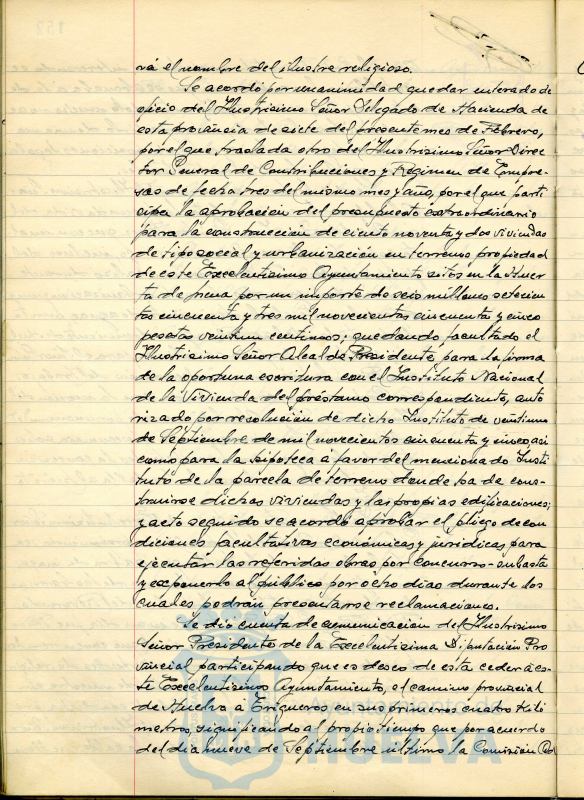 rá el nombre del ilustre religioso.
Se acordó por unanimidad quedar enterado de
oficio del Ilustrísimo Señor Delegado de Hacienda de
esta provincia de siete del presente mes de Febrero,
por el que traslada otro del Ilustrísimo Señor Direc
tor General de Contribuciones y Régimen de Empre-
sas de fecha tres del mismo mes y año, por el que parti
cipa la aprobación del presupuesto extraordinario
para la construcción de ciento noventa y dos viviendas
de tipo social y urbanización en terrenos propiedad
de este Excelentísimo Ayuntamiento sitos en la Huer
ta de Mena por un importe de seis millones setecien
tas cincuenta y tres mil novecientas cincuenta y cinco
pesetas veintiun centimos; quedando facultado el
Ilustrísimo Señor Alcalde Presidente para la firma
de la oportuna escritura con el Instituto Nacional
de la Vivienda del préstamo correspondiente, auto
rizado por resolución de dicho Instituto de veintiuno
de Septiembre de mil novecientos cincuenta y cinco, así
como para la hipoteca a favor del mencionado Insti
tuto de la parcela de terreno donde ha de cons-
truirse dichas viviendas y las propias edificaciones;
y acto seguido se acordó aprobar el pliego de con
diciones facultativas económicas y jurídicas para
ejecutar las referidas obras por concurso-subasta
y exponerlo al público por ocho días durante los
cuales podrán presentarse reclamaciones.
Se dió cuenta de comunicación del Ilustrísimo
Señor Presidente de la Excelentísima Diputación Pro
vincial participando que es deseo de esta ceder a es-
te Excelentísimo Ayuntamiento, el camino provincial
de Huelva a Trigueros en sus primeros cuatro kiló
metros, significando al propio tiempo que por acuerdo
del día nueve de Septiembre último la Comisión
HUELVA